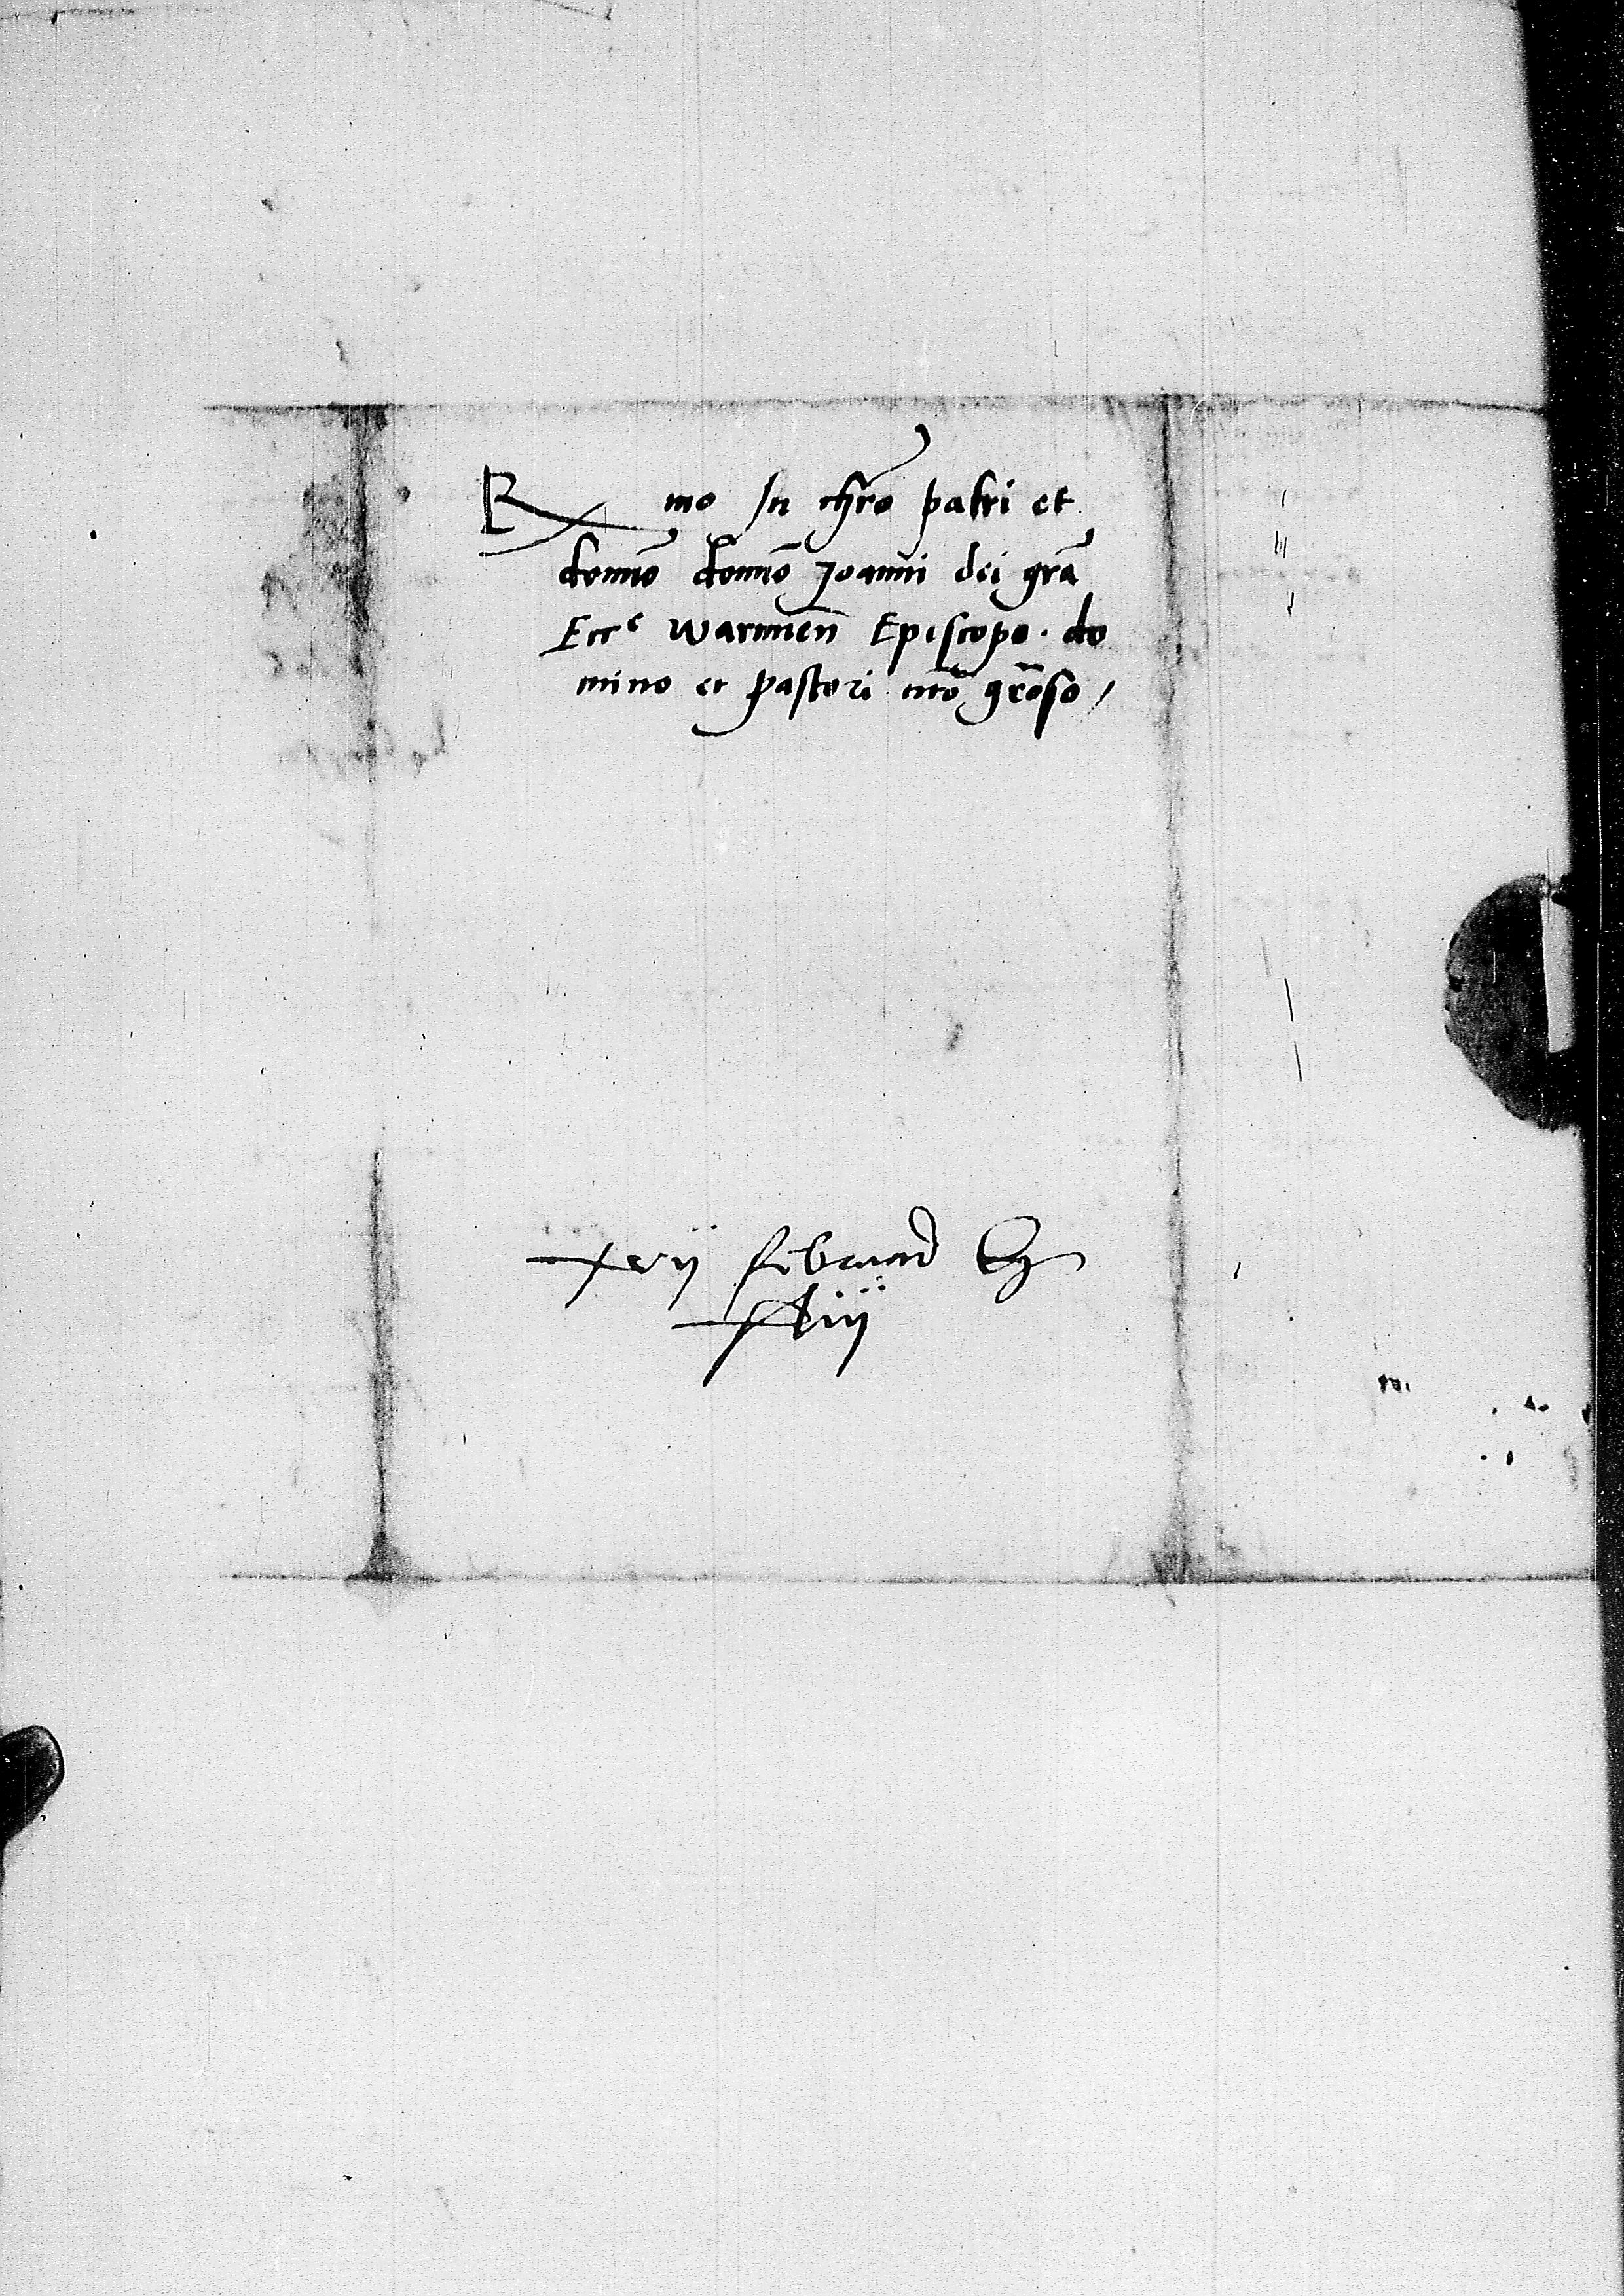 Rmo In chro patri et
domno domno Joanni dei gra
Eccᵉ Warmien Episcopo. do
mino et pastori nro groso /
xvij februarij
xliij